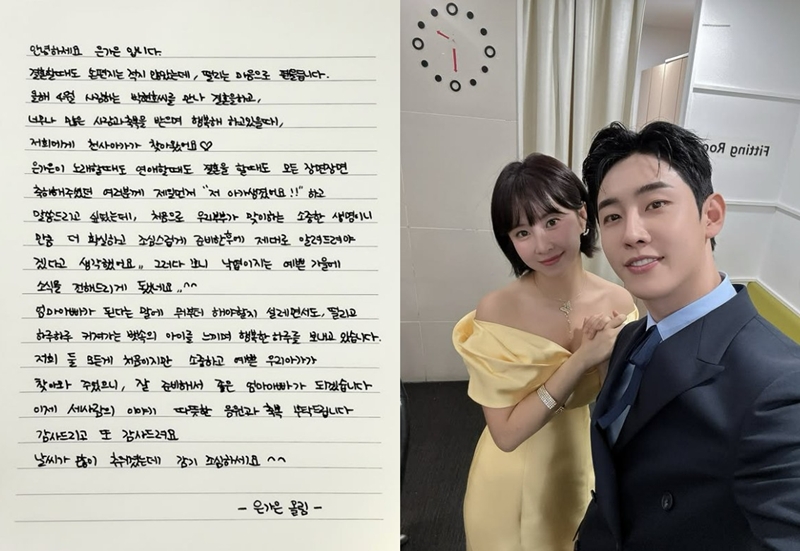 안녕하세요 은가은 입니다.
결혼할때도 손편지는 적지 않았는데, 떨리는 마음으로 편을듭니다.
올해 4월 사랑하는 박현호씨를 만나 결혼을하고,
너무나 많은 사랑과축복을 받으며 행복해 하고있을때,
저희에게 천사아가가 찾아왔어요♡
은가은이 노래할때도 연애할때도 결혼을 할때도 모든 장면장면
축하해주셨던 여러분께 제일먼저 "저 아가생겼어요!!" 하고
말씀드리고 싶었는데, 처음으로 우리부부가 맞이하는 소중한 생명이니
만큼 더 확실하고 조심스럽게 준비한후에 제대로 알려드려야
겠다고 생각했어요,, 그러다 보니 낙엽이지는 예쁜 가을에
소식을 전해드리게 됐네요,,^^
엄마아빠가 된다는 말에 뭐부터 해야할지 설레면서도, 떨리고
하루하루 커져가는 뱃속의 아이를 느끼며 행복한 하루를 보내고 있습니다.
저희 둘 모든게 처음이지만 소중하고 예쁜 우리아가가
찾아와 주었으니, 잘 준비해서 좋은 엄마아빠가 되겠습니다
이제 세사람의 이야기 따뜻한 응원과 축복 부탁드립니다
감사드리고 또 감사드려요
날씨가 많이 추워졌는데 감기 조심하세요 ^^
- 은가은 올림 -
Fitting Roo